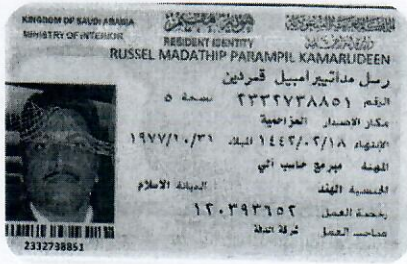 KINGDOM OF SAUDI ARABIA
MINISTRY OF INTERIOR
RESIDENT IDENTITY
RUSSEL MADATHIP PARAMPIL KAMARUDEEN
رسل مداتيبرامبيل قمردين
الرقم ٢٣٣٢٧٣٨٨٥١ نسخة ٥
مكان الاصدار المزاحمية
الإنتهاء ١٤٤٢/٠٢/١٨ الميلاد ١٩٧٧/١٠/٣١
المهنة مبرمج حاسب آلي
الجنسية الهند الديانة الاسلام
رخصة العمل ١٢٠٣٩٣٦٥٢
صاحب العمل شركة
2332738851